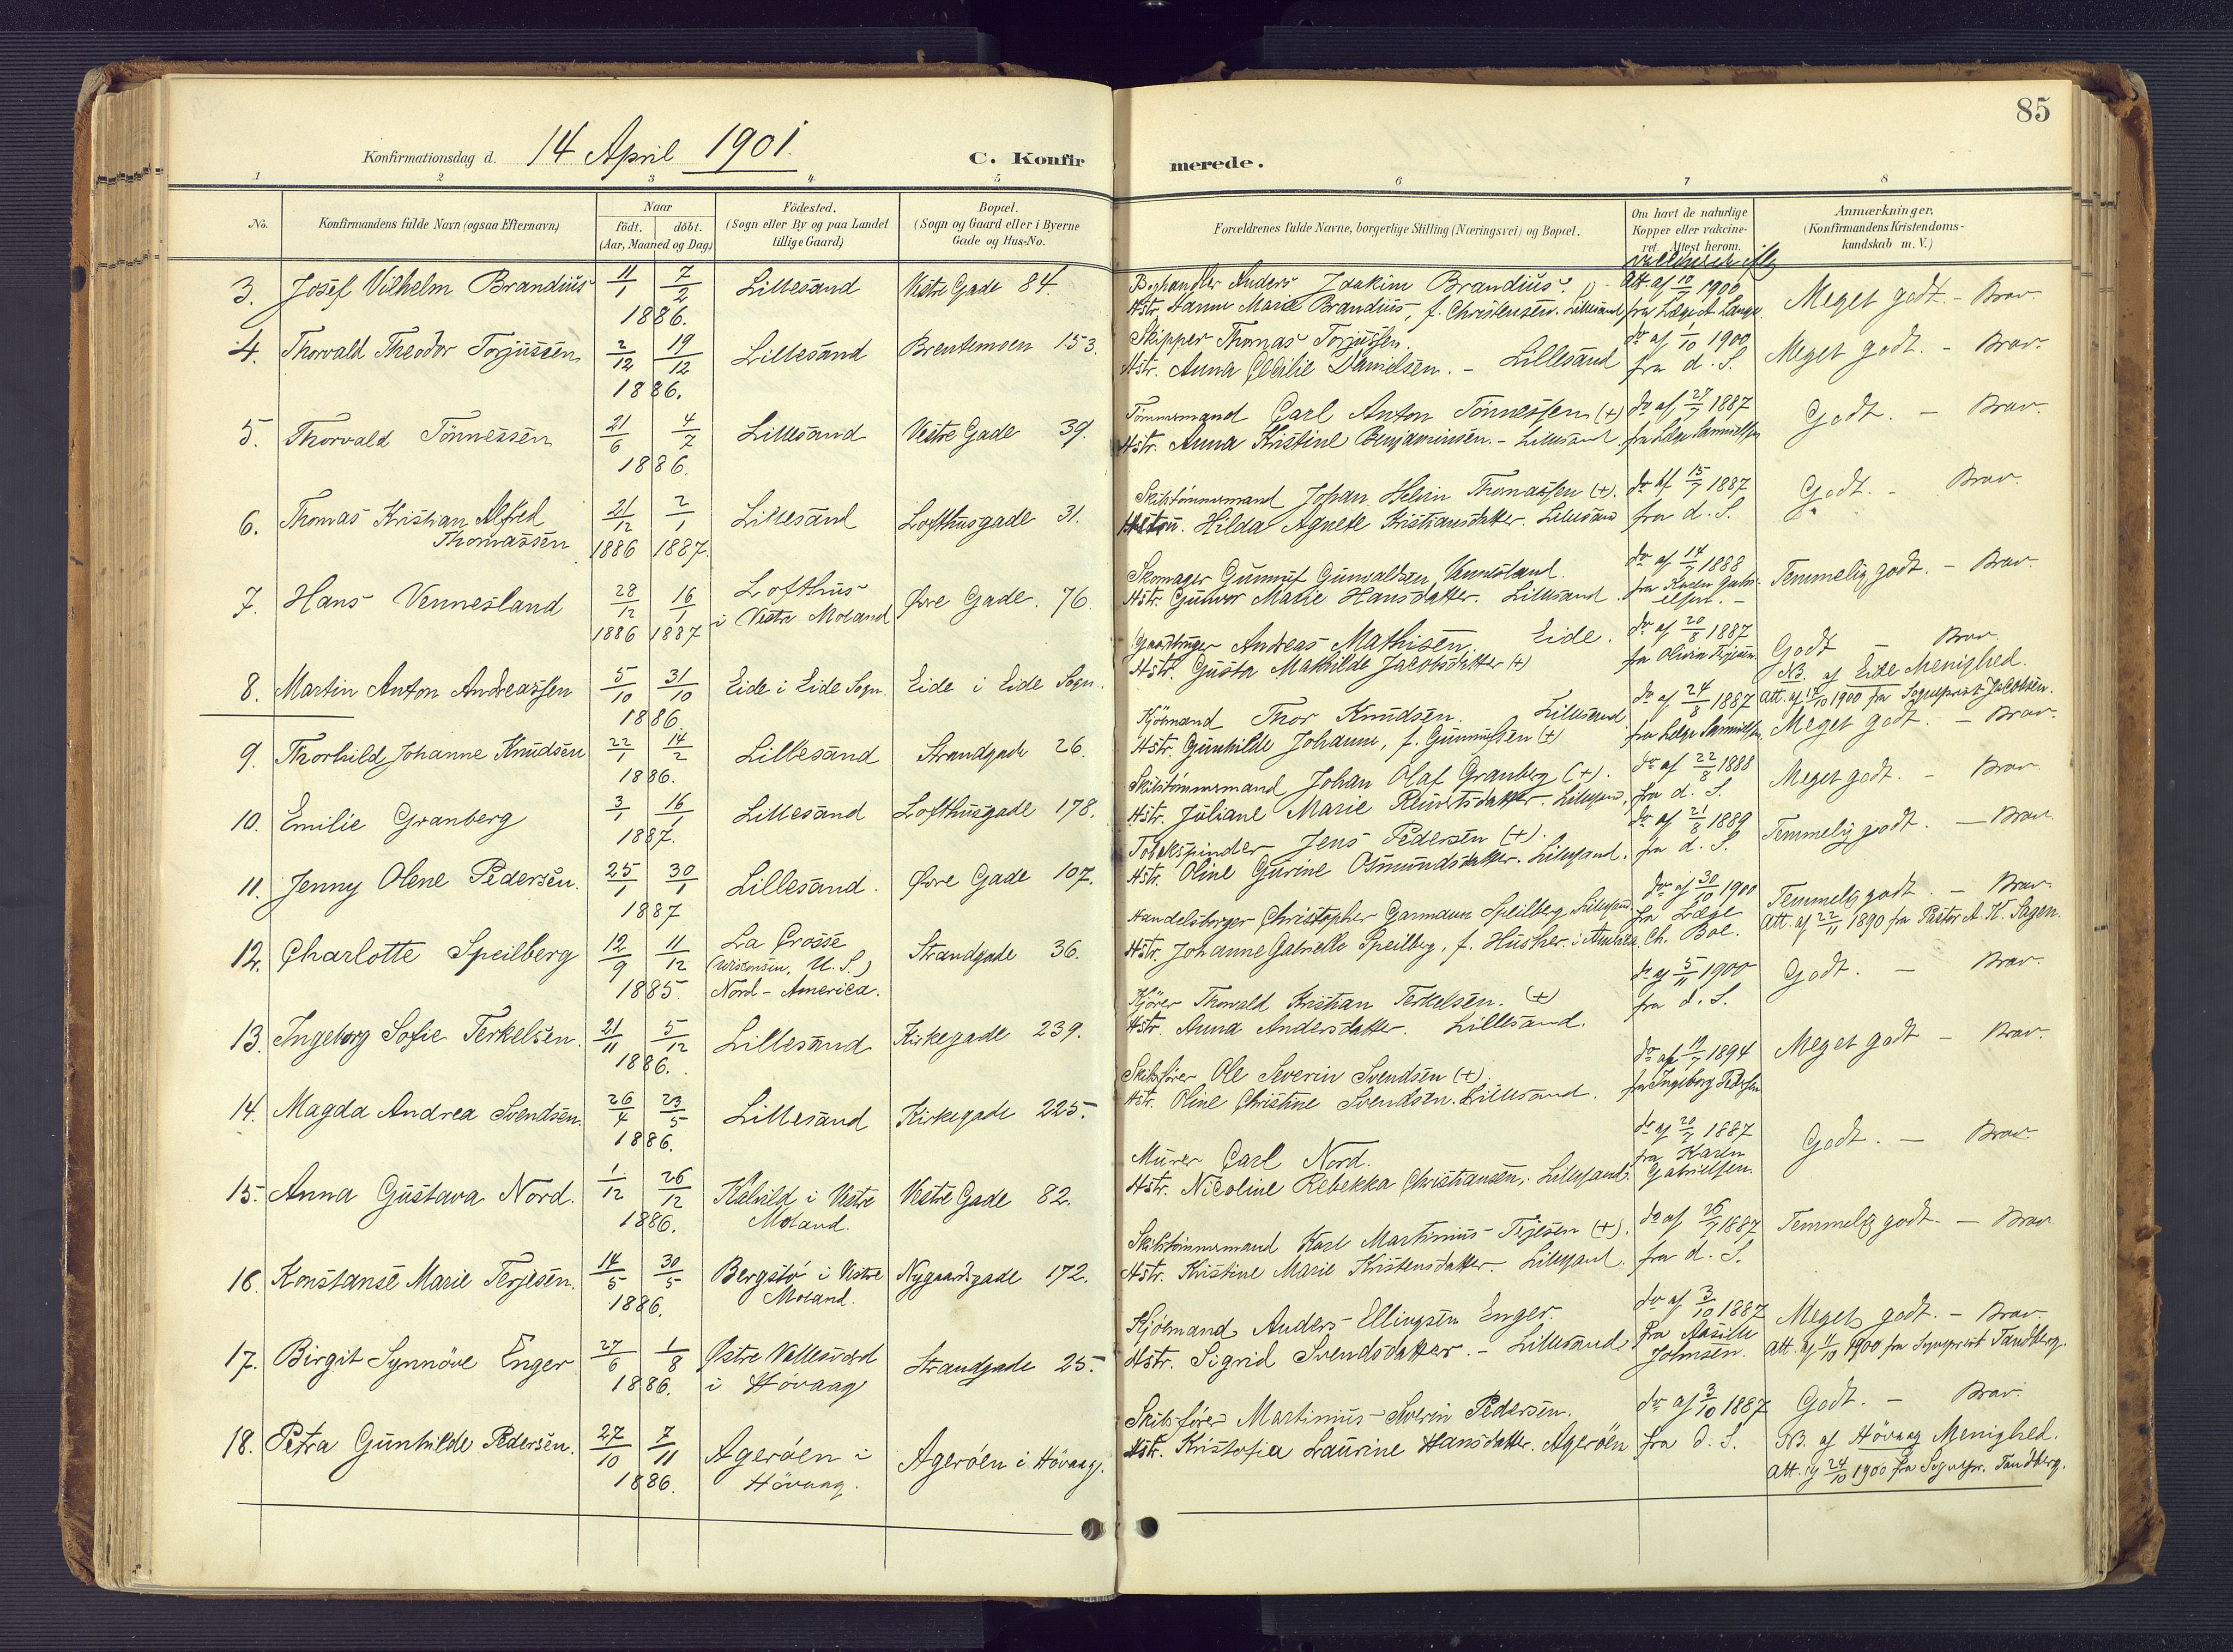 85
Konfirmationsdag d. 14 April 1901.
C. Konfirmerede.
1 2 3 4 5 6 7 8
No.
Konfirmandens fulde Navn (ogsaa Efternavn)
Naar
födt. döbt.
(Aar, Maaned og Dag)
Födested.
(Sogn eller By og paa Landet
tillige Gaard)
Bopæl.
(Sogn og Gaard eller i Byerne
Gade og Hus-No.
Forældrenes fulde Navne, borgerlige Stilling (Næringsvei) og Bopæl.
Om havt de naturlige
Kopper eller vakcine-
ret. Attest herom.
Anmærkninger.
(Konfirmandens Kristendoms-
kundskab m. V.)
3. Josef Vilhelm Brandius 11/1 7/2 1886. Lillesand Vestre Gade 84.
Anders Joakim Brandius.
Hstr. Hanne Marie Brandius, f. Christensen. Lillesand
Att. af 10/9 1900
fra Læge A. Lange.
Meget godt. - Brav
4. Thorvald Theodor Torjussen 2/12 19/12 1886. Lillesand Brentemoen 153.
Skipper Thomas Torjussen.
Hstr. Anna Cecilie Danielsen. - Lillesand
do af 1/10 1900
fra d. S.
Meget godt. - Brav.
5. Thorvald Tönnessen 21/6 4/7 1886. Lillesand Vestre Gade 39.
Tömmermand Carl Anton Tönnessen (+)
Hstr. Anna Kristine Benjaminsen. - Lillesand
do af 29/7 1887
fra Læge Samuelsen
Godt. - Brav.
6. Thomas Kristian Alfred
Thomassen 21/12 1886 2/1 1887. Lillesand Lofthusgade 31.
Skibstömmermand Johan Helvin Thomassen (+).
Hilda Agnete Kristiansdatter. Lillesand
do af 15/7 1887
fra d. S.
Godt. - Brav.
7. Hans Vennesland 28/12 1886 16/1 1887 Lofthus
i Vestre Moland Øvre Gade. 76.
Skomager Gunnuf Gunvaldsen Vennesland.
Hstr. Gunvor Marie Hansdatter. Lillesand.
do af 14/7 1888
fra Karen Gabri-
elsen. -
Temmelig godt. - Brav.
8. Martin Anton Andreassen 5/10 31/10 1886. Eide i Eide Sogn. Eide i Eide Sogn.
Gaardbruger Andreas Mathisen. Eide.
Hstr. Gusta Mathilde Jacobsdatter (+)
do af 20/8 1887
fra Olivia Terjesen.
Godt - Brav.
NB. af Eide Menighed.
Att. af 17/10 1900 fra Sogneprest Jacobsen.
9. Thorhild Johanne Knudsen 22/1 14/2 1886. Lillesand Strandgade 26.
Kjöbmand Thor Knudsen. Lillesand.
Hstr. Gunhilde Johanne, f. Gunnufsen (+)
do af 24/8 1887
fra Læge Samuelsen
Meget godt. - Brav.
10. Emilie Granberg 3/1 16/1 1887. Lillesand Lofthusgade 178.
Skibstömmermand Johan Olaf Granberg (+).
Hstr. Juliane Marie Reiertsdatter. Lillesand.
do af 22/8 1888
fra d. S.
Meget godt. - Brav.
11. Jenny Olene Pedersen. 25/1 30/1 1887 Lillesand. Øvre Gade 107.
Tobakspinder Jens Pedersen (+).
Hstr. Oline Gurine Osmundsdatter. Lillesand.
do af 21/8 1889
fra d. S.
Temmelig godt. - Brav.
12. Charlotte Speilberg 12/9 11/12 1885. La Crosse
(Wisconsin, U. S.)
Nord-America. Strandgade 36.
Handelsborger Christopher Garmann Speilberg Lillesand
Hstr. Johanne Gabrielle Speilberg, f. Husher. i Amerika
do af 30/10 1900
fra Læge
Ch. Boe.
Temmelig godt. - Brav.
Att. af 22/11 1890 fra Pastor A. K. Sagen.
13. Ingeborg Sofie Terkelsen. 21/11 5/12 1886. Lillesand Kirkegade 239.
Kjörer Thorvald Kristian Terkelsen. (+)
Hstr. Anna Andersdatter. Lillesand.
do af 5/11 1900
fra d. S.
Godt. - Brav.
14. Magda Andrea Svendsen. 26/4 23/5 1886. Lillesand Kirkegade 225.
Skibsförer Ole Severin Svendsen (+).
Hstr. Oline Christine Svendsen. Lillesand.
do af 19/7 1894
fra Ingeborg Pedersen
Meget godt - Brav.
15. Anna Gustava Nord. 1/12 26/12 1886. Kalvild i Vestre
Moland. Vestre Gade 82.
Murer Carl Nord.
Hstr. Nicoline Rebekka Christiansen, Lillesand.
do af 20/7 1887
fra Karen
Gabrielsen.
Godt. - Brav.
16. Konstanse Marie Terjesen. 14/5 30/5 1886. Bergstö i Vestre
Moland. Nygaardsgade 172.
Skibstömmermand Karl Martinius Terjesen (+).
Hstr. Kristine Marie Kristensdatter. Lillesand.
do af 26/7 1887
fra d. S.
Temmelig godt. - Brav
17. Birgit Synnöve Enger 27/6 1/8 1886. Østre Vallesværd
i Hövaag Strandgade 25.
Kjöbmand Anders Ellingsen Enger.
Hstr. Sigrid Svendsdatter. - Lillesand
do af 3/10 1887
fra Masille
Johnsen.
Meget godt. - Brav.
Att. af 11/10 1900 fra Sogneprest Tandberg.
18. Petra Gunhilde Pedersen. 27/10 7/11 1886. Ageröen i
Hövaag. Ageröen i Hövaag.
Skibsförer Martinius Severin Pedersen.
Hstr. Kristofia Laurine Hansdatter. Ageröen
do af 3/10 1887
fra d. S.
Godt. - Brav.
NB. af Hövaag Menighed.
Att. af 24/10 1900 fra Sognepr. Tandberg.